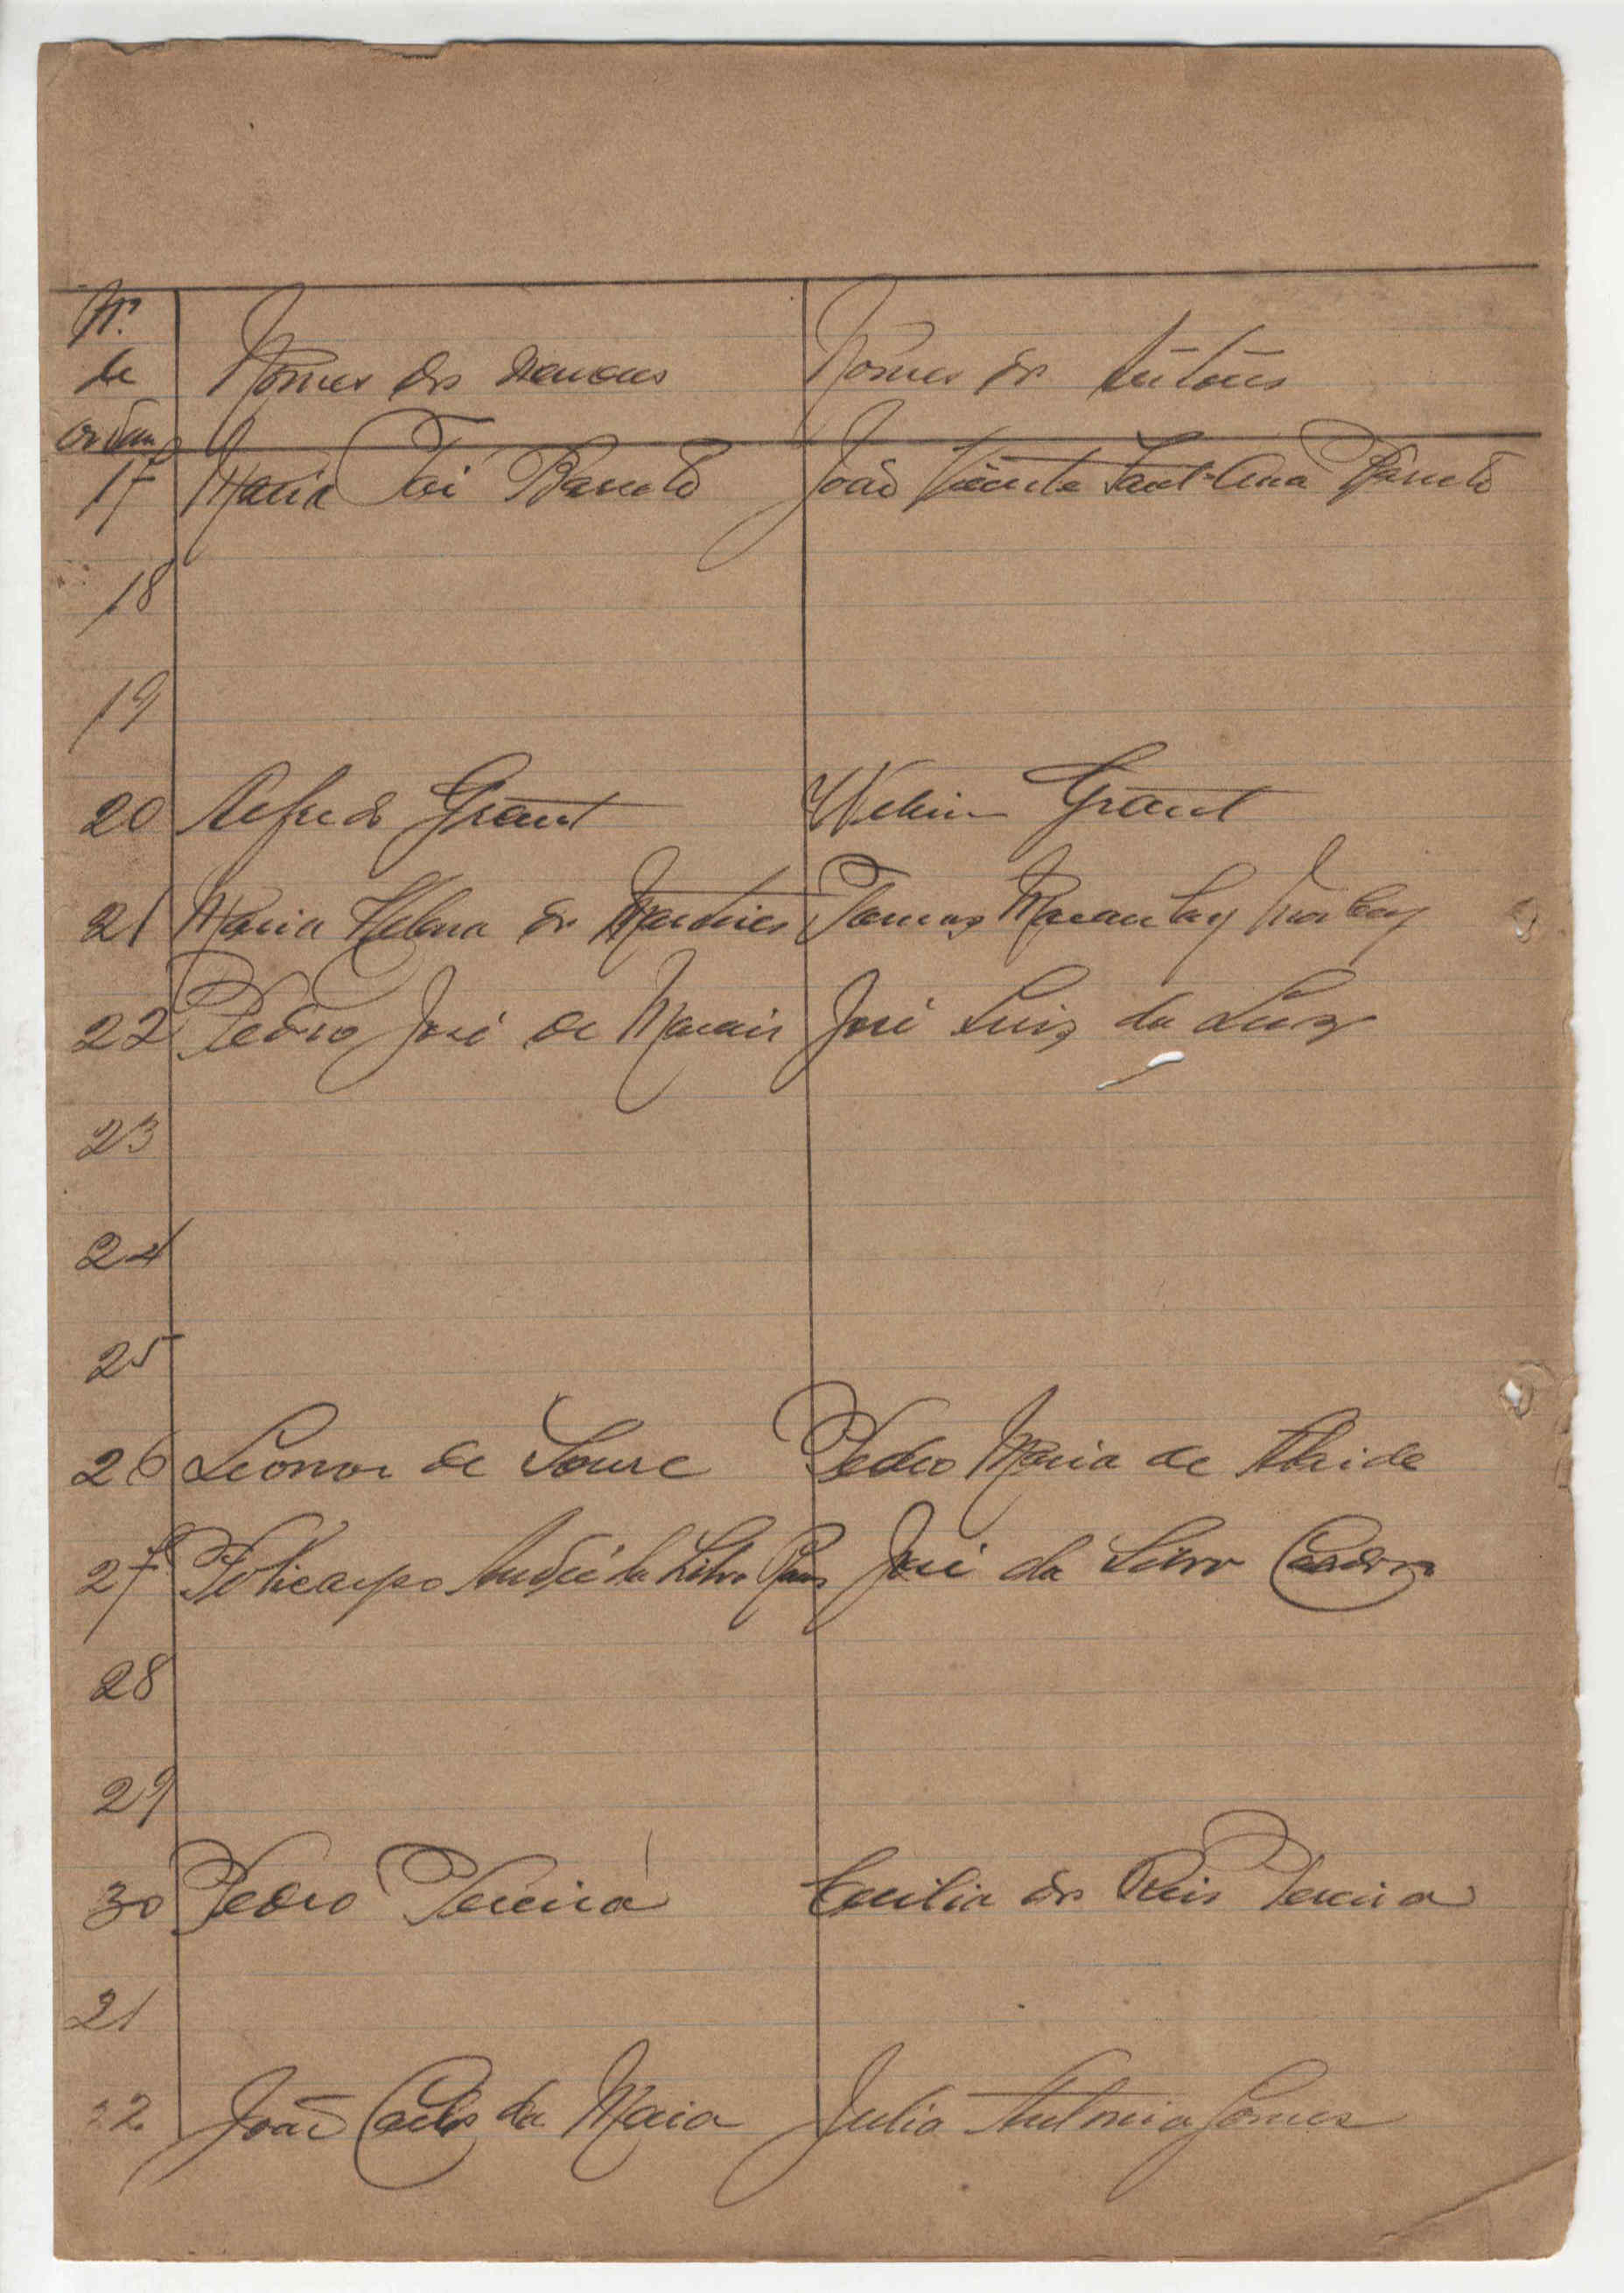 Nº
de
ordem
Nomes dos menores
Nomes dos tutores
17 Maria Barreto João Vicente Sant'Ana Barreto
18
19
20 Alfredo Grant Grant
21 Maria Helena dos Martires Macaulay
22 Pedro José de Morais José Luiz da Luz
23
24
25
26 Leonor de Soure Pedro Maria de Ataide
27 Policarpo André da Silva Pais José da Silva Cardoso
28
29
30 Pedro Pereira Cecilia dos Reis Pereira
21
32 João Carlos da Maia Julia Antonia Gomes